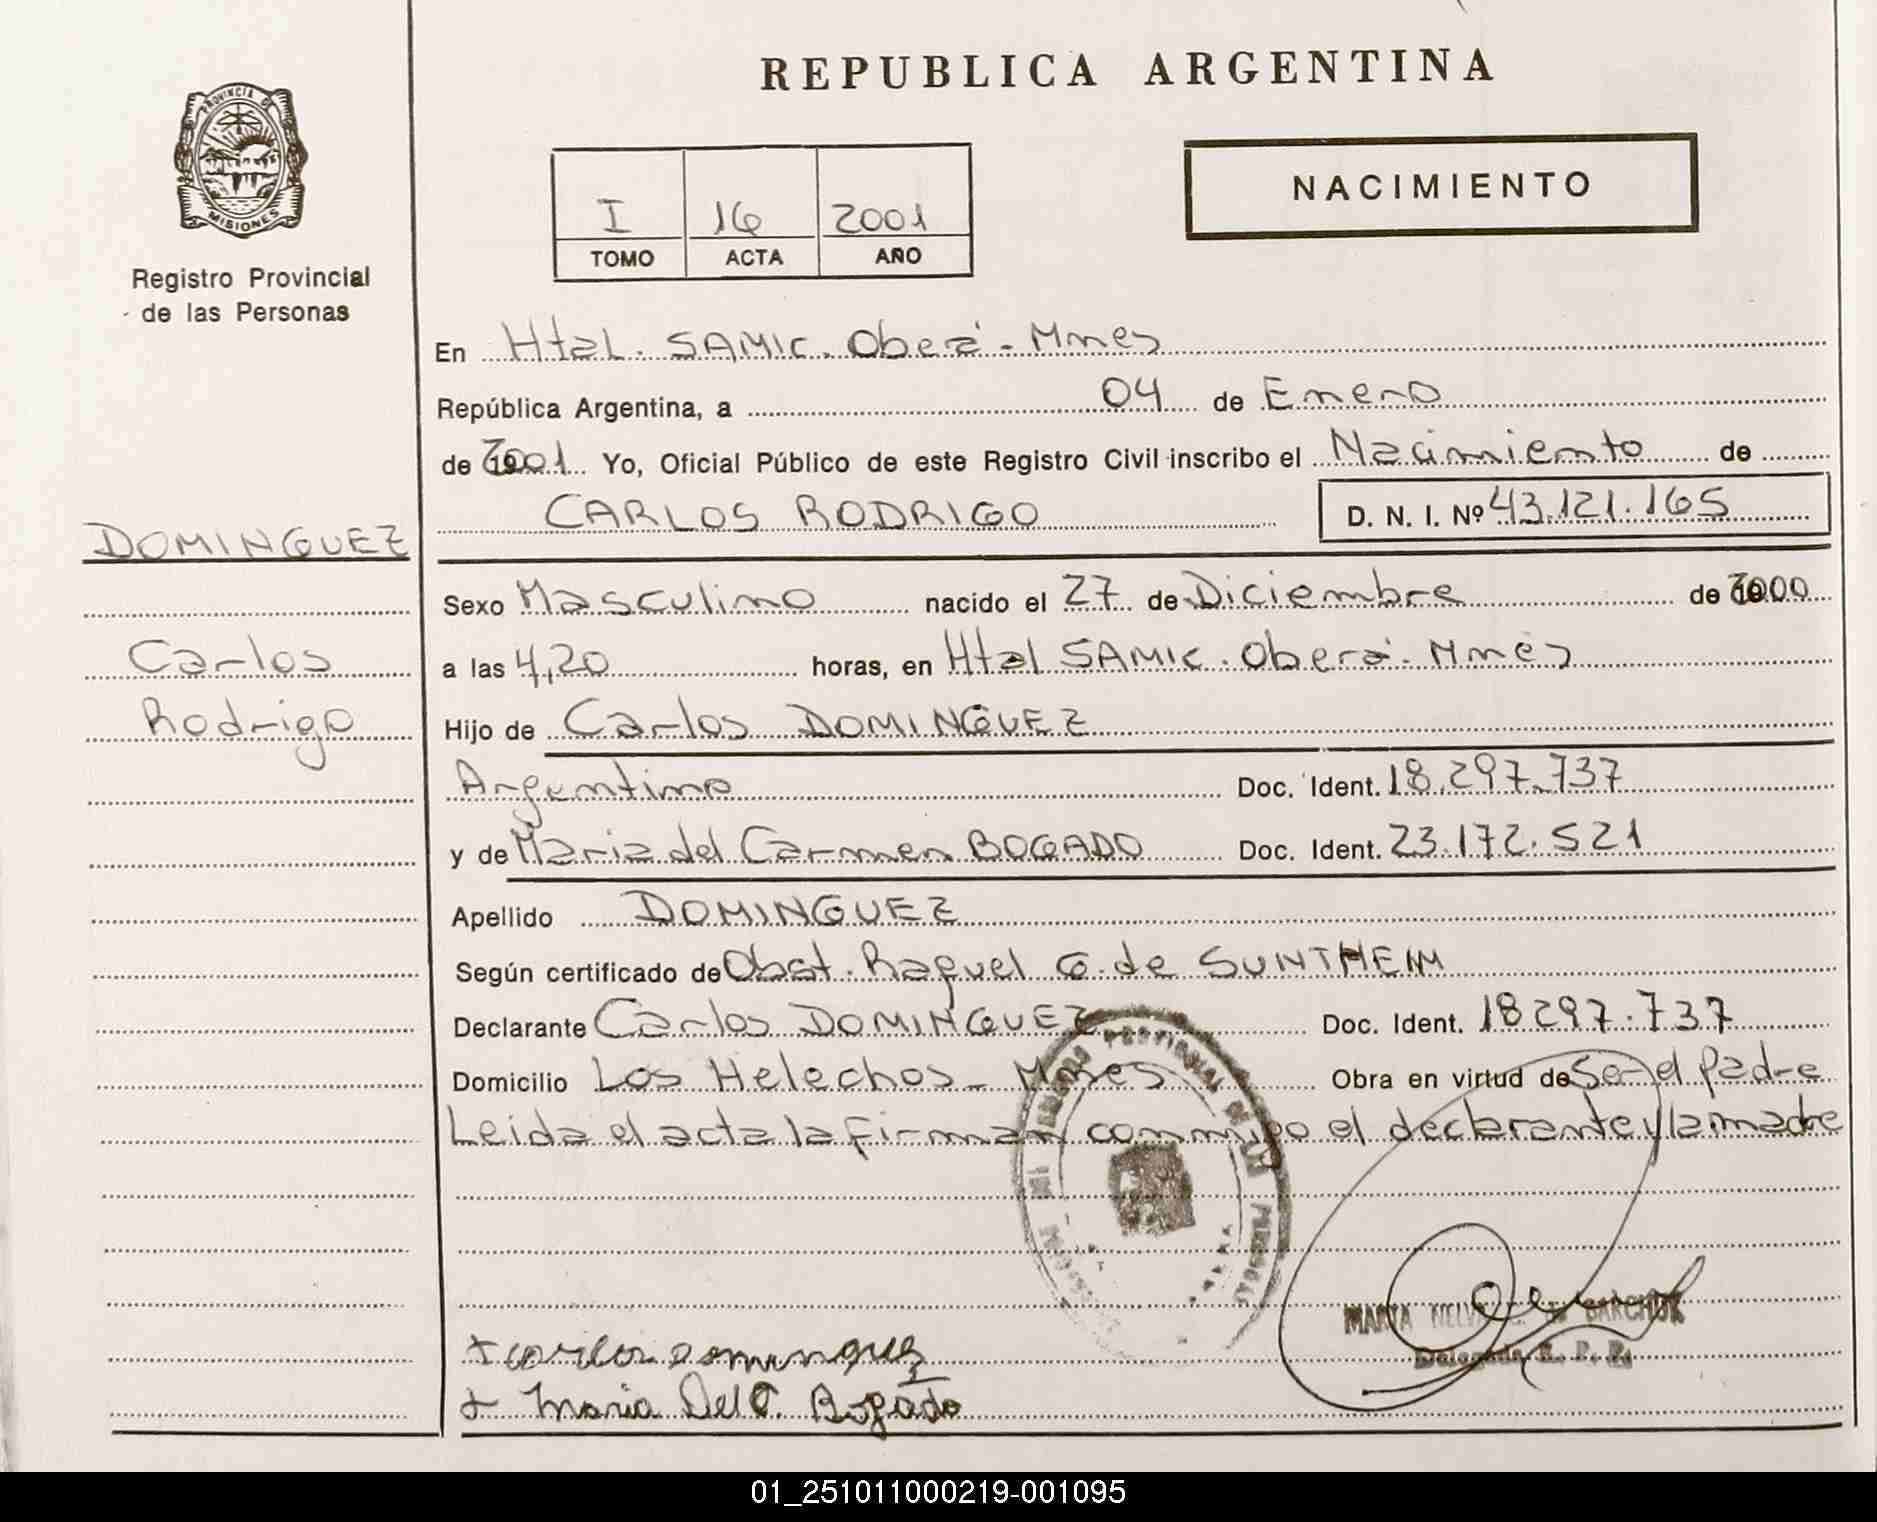 REPUBLICA ARGENTINA
PROVINCIA DE
MISIONES
Registro Provincial
de las Personas
I 16 2001
TOMO ACTA AÑO
NACIMIENTO
En Htal. SAMIC. Oberá - Mnes
República Argentina, a 04 de Enero
de 2001 Yo, Oficial Público de este Registro Civil inscribo el Nacimiento de
CARLOS RODRIGO D. N. I. Nº 43.121.165
DOMINGUEZ
Carlos
Rodrigo
Sexo Masculino nacido el 27 de Diciembre de 2000
a las 4,20 horas, en Htal SAMIC. Oberá. Mnes
Hijo de Carlos DOMINGUEZ
Argentino Doc. Ident. 18.297.737
y de Maria del Carmen BOGADO Doc. Ident. 23.172.521
Apellido DOMINGUEZ
Según certificado de Obst. Raquel G. de SUNTHEIM
Declarante Carlos DOMINGUEZ Doc. Ident. 18297.737
Domicilio Los Helechos - Mnes Obra en virtud de Ser el padre
Leida el acta la firman conmigo el declarante y la madre
MARIA NELVA DE BARCHUK
Delegada R. P. P.
+ carlos Dominguez
+ Maria Del C. Bogado
01_251011000219-001095